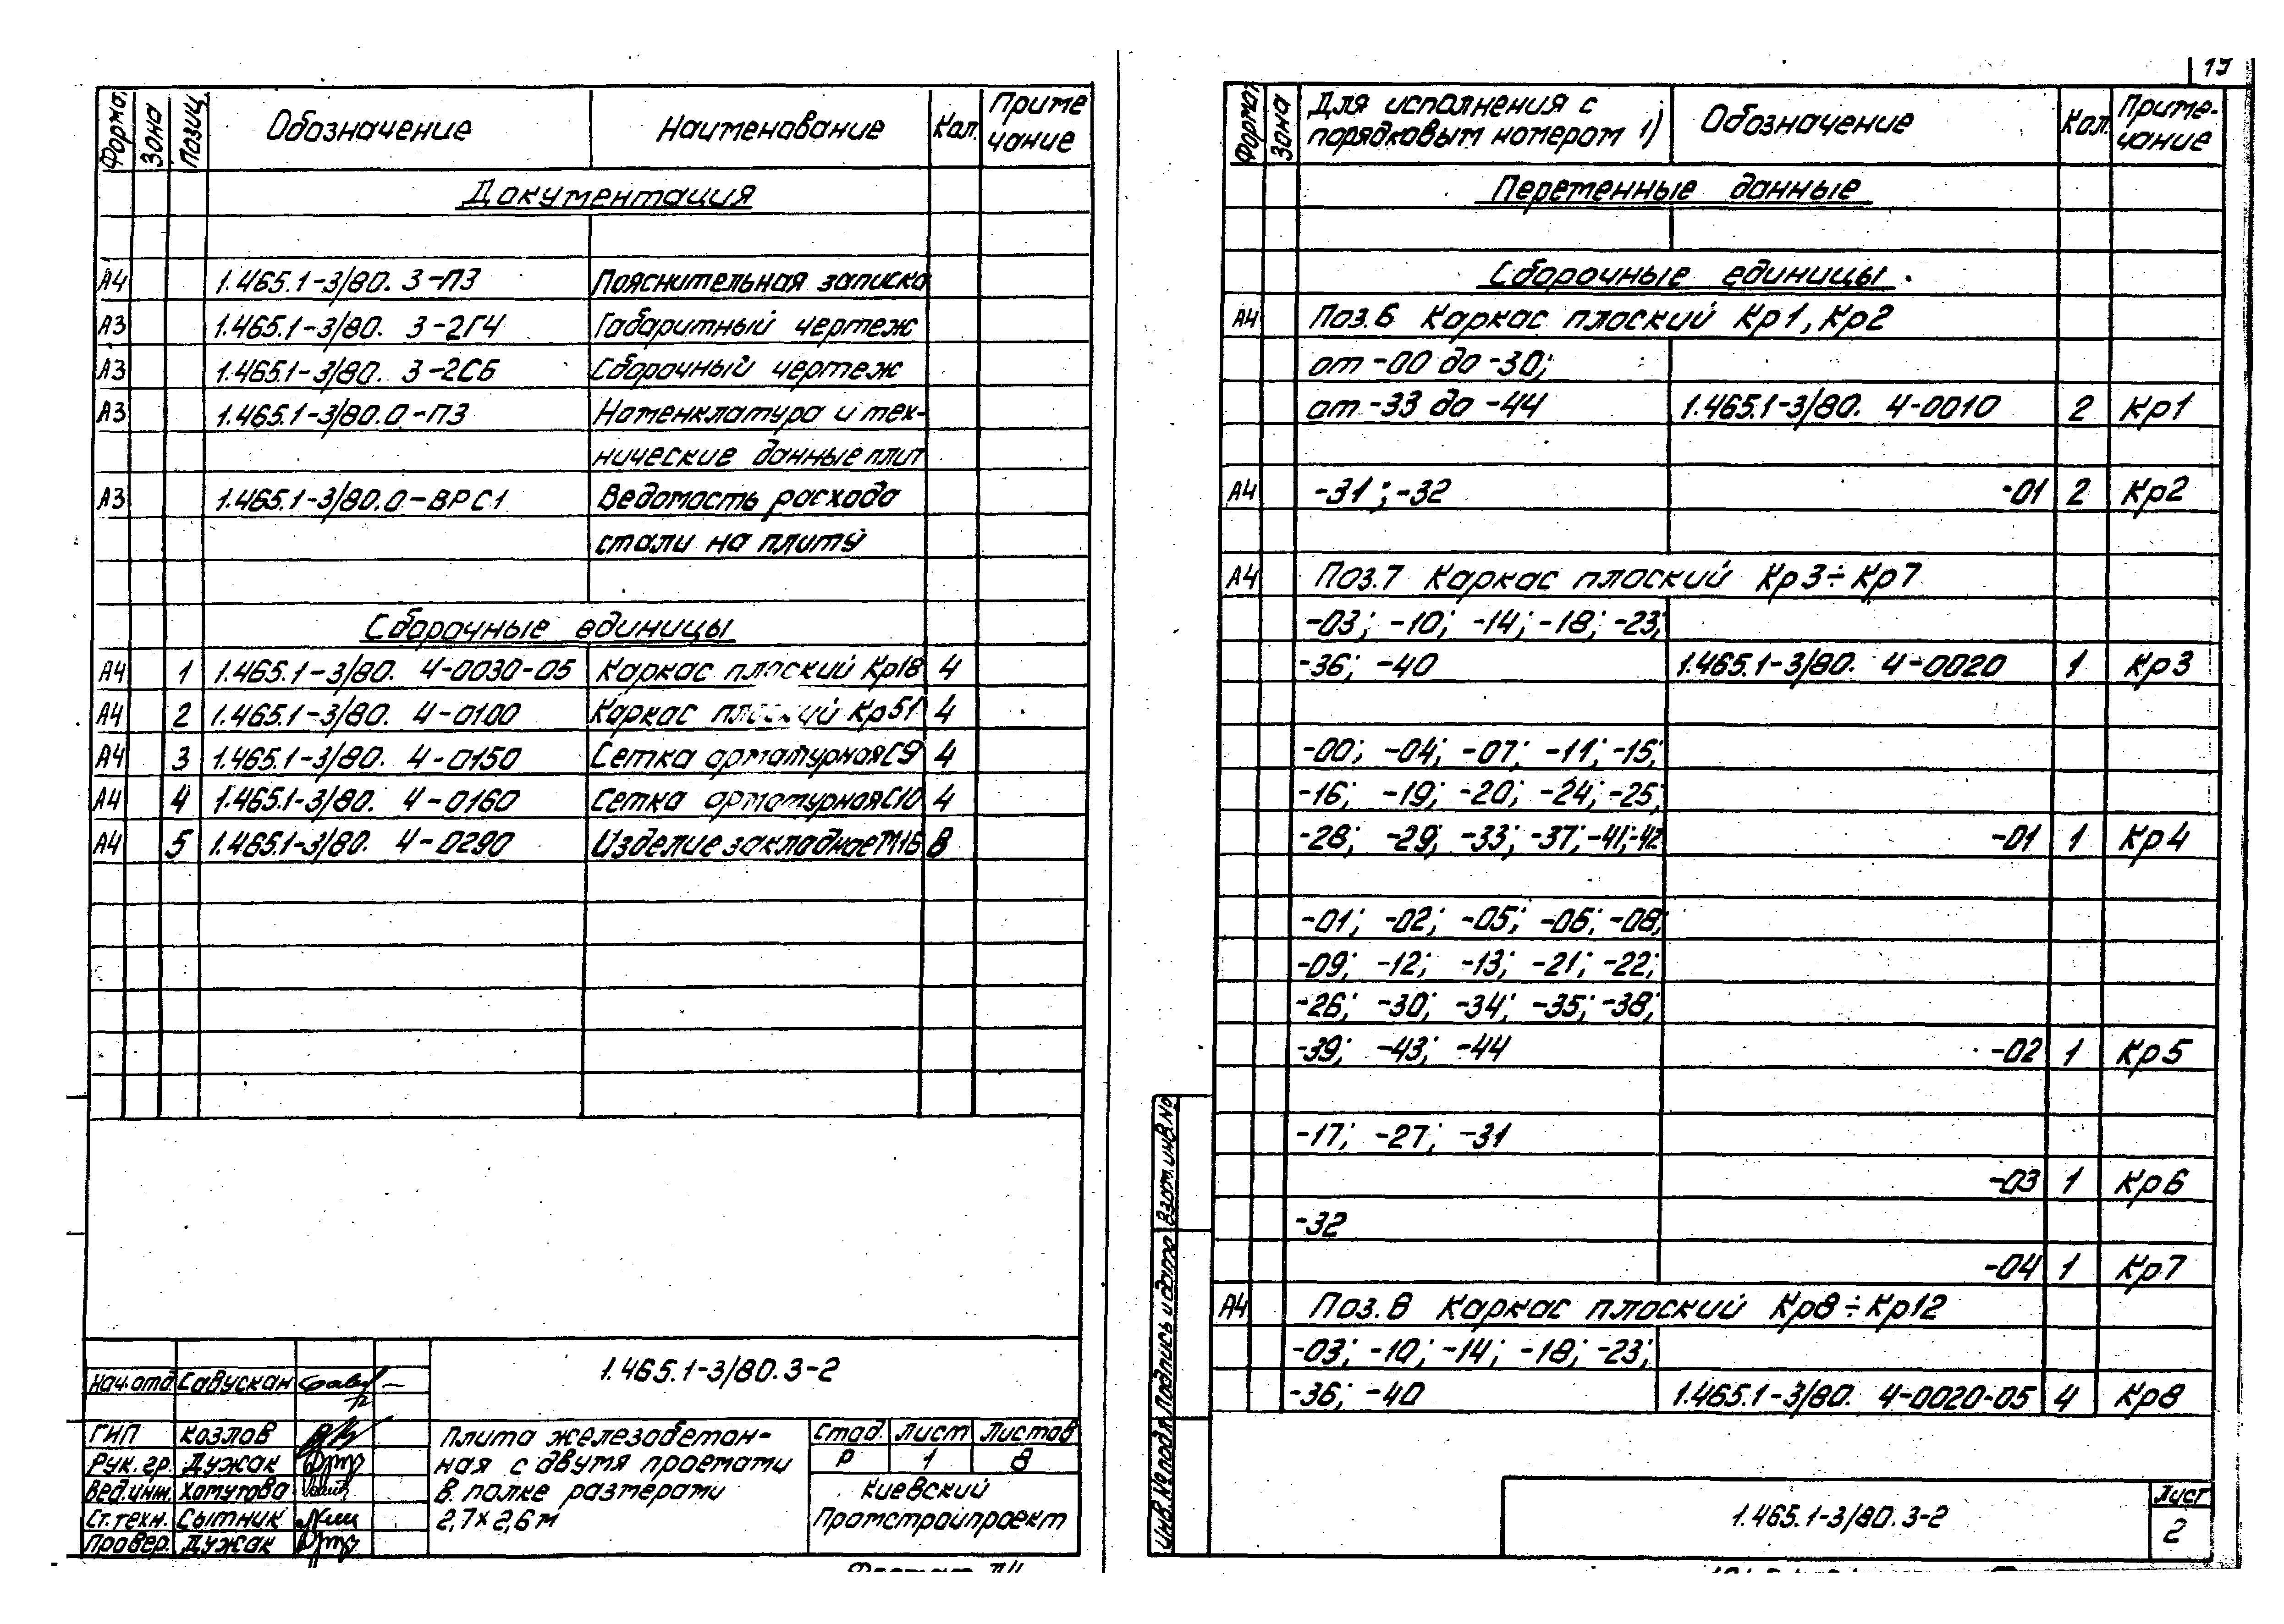 Формат Зона Позиц. Обозначение Наименование Кол. Приме
чание
Документация
А4 1.465.1-3/80. 3-ПЗ Пояснительная записка
А3 1.465.1-3/80. 3-2ГЧ Габаритный чертеж
А3 1.465.1-3/80. 3-2СБ Сборочный чертеж
А3 1.465.1-3/80.0-ПЗ Номенклатура и тех-
нические данные плит
А3 1.465.1-3/80.0-ВРС1 Ведомость расхода
стали на плиту
Сборочные единицы
А4 1 1.465.1-3/80. 4-0030-05 Каркас плоский Кр18 4
А4 2 1.465.1-3/80. 4-0100 Каркас плоский Кр51 4
А4 3 1.465.1-3/80. 4-0150 Сетка арматурная С9 4
А4 4 1.465.1-3/80. 4-0160 Сетка арматурная С10 4
А4 5 1.465.1-3/80. 4-0290 Изделие закладное М16 8
1.465.1-3/80.3-2
Нач.отд Савускан
ГИП Козлов
Рук. гр. Дужак
Вед.инж. Хомутова
Ст.техн. Сытник
Провер. Дужак
Плита железобетон-
ная с двумя проемами
в полке размерами
2,7×2,6м
Стад. Лист Листов
Р 1 8
Киевский
Промстройпроект
19
Формат Зона Для исполнения с
порядковым номером 1) Обозначение Кол. Приме-
чание
Переменные данные
Сборочные единицы
А4 Поз.6 Каркас плоский Кр1, Кр2
от -00 до -30;
от -33 до -44 1.465.1-3/80. 4-0010 2 Кр1
А4 -31; -32 -01 2 Кр2
А4 Поз.7 Каркас плоский Кр3÷Кр7
-03; -10; -14; -18; -23;
-36; -40 1.465.1-3/80. 4-0020 1 Кр3
-00; -04; -07; -11; -15;
-16; -19; -20; -24; -25;
-28; -29; -33; -37; -41; -42 -01 1 Кр4
-01; -02; -05; -06; -08;
-09; -12; -13; -21; -22;
-26; -30; -34; -35; -38;
-39; -43; -44 -02 1 Кр5
-17; -27; -31
-03 1 Кр6
-32
-04 1 Кр7
А4 Поз.8 Каркас плоский Кр8÷Кр12
-03; -10; -14; -18; -23;
-36; -40 1.465.1-3/80. 4-0020-05 4 Кр8
Инв.№подл. Подпись и дата Взам.инв.№
1.465.1-3/80.3-2
Лист
2